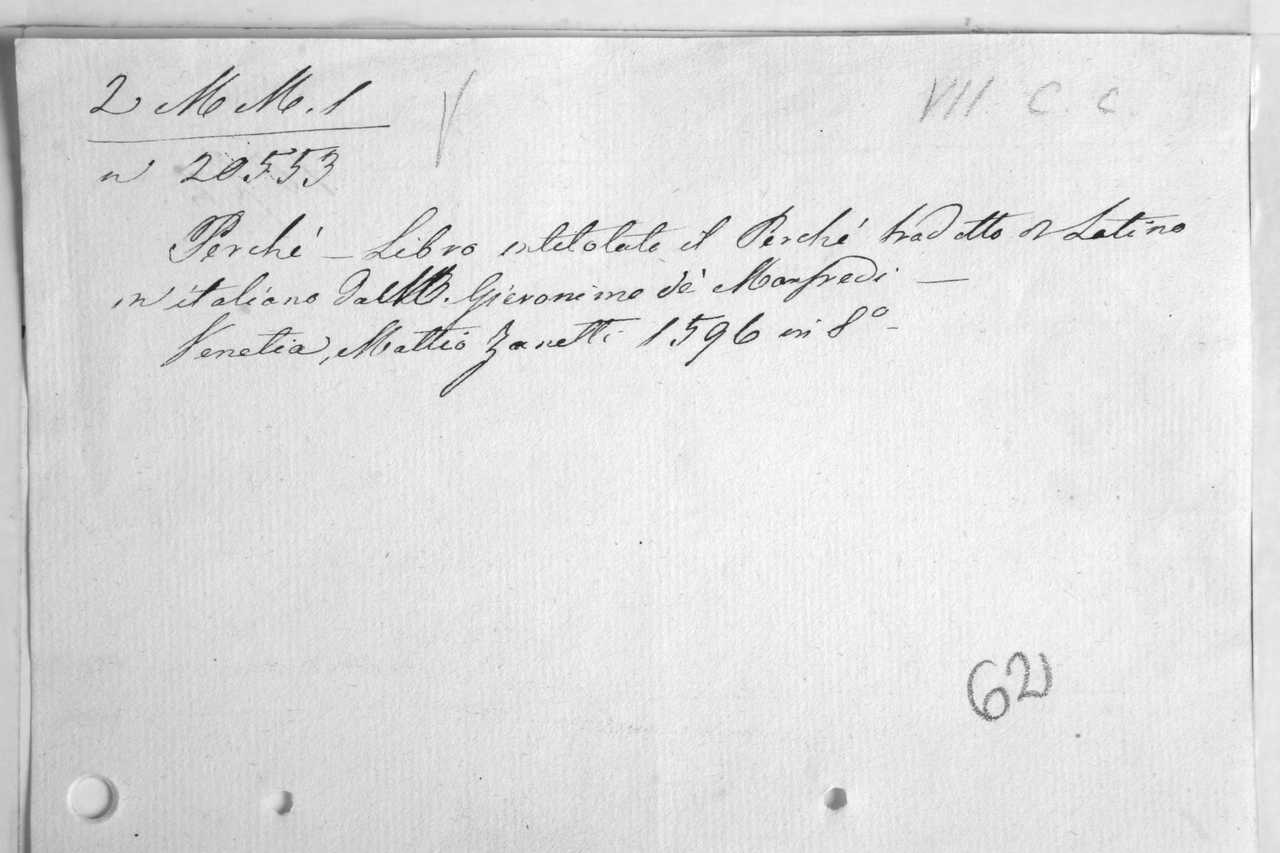 2 M M. 1
VII. C. C.
n 20553
Perché – Libro intitolato il Perché tradotto di Latino
in italiano dall M. Gieronimo de' Manfredi —
Venetia, Mattio Zanetti 1596 in 8º
62